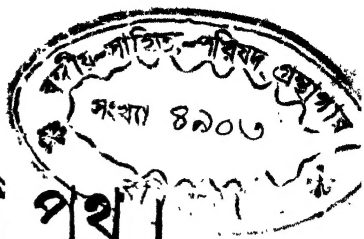 বঙ্গীয়-সাহিত্য-পরিষদ গ্রন্থাগার
সংখ্যা ৪৯০৩
পথ।